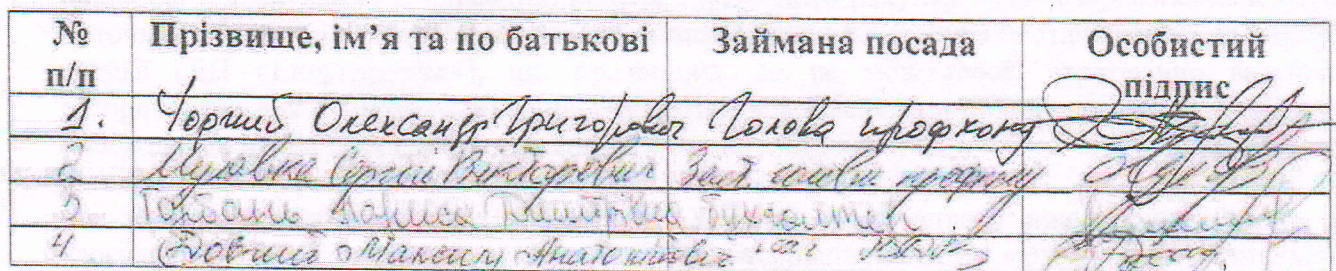 № п/п Прізвище, ім’я та по батькові Займана посада Особистий підпис
1. Чорний Олександр Григорович Голова профкому
2 Сергій Вікторович Заст. голови профкому
3 Горбань Лариса Дмитрівна Бухгалтер
4 Довгий Максим Анатолійович